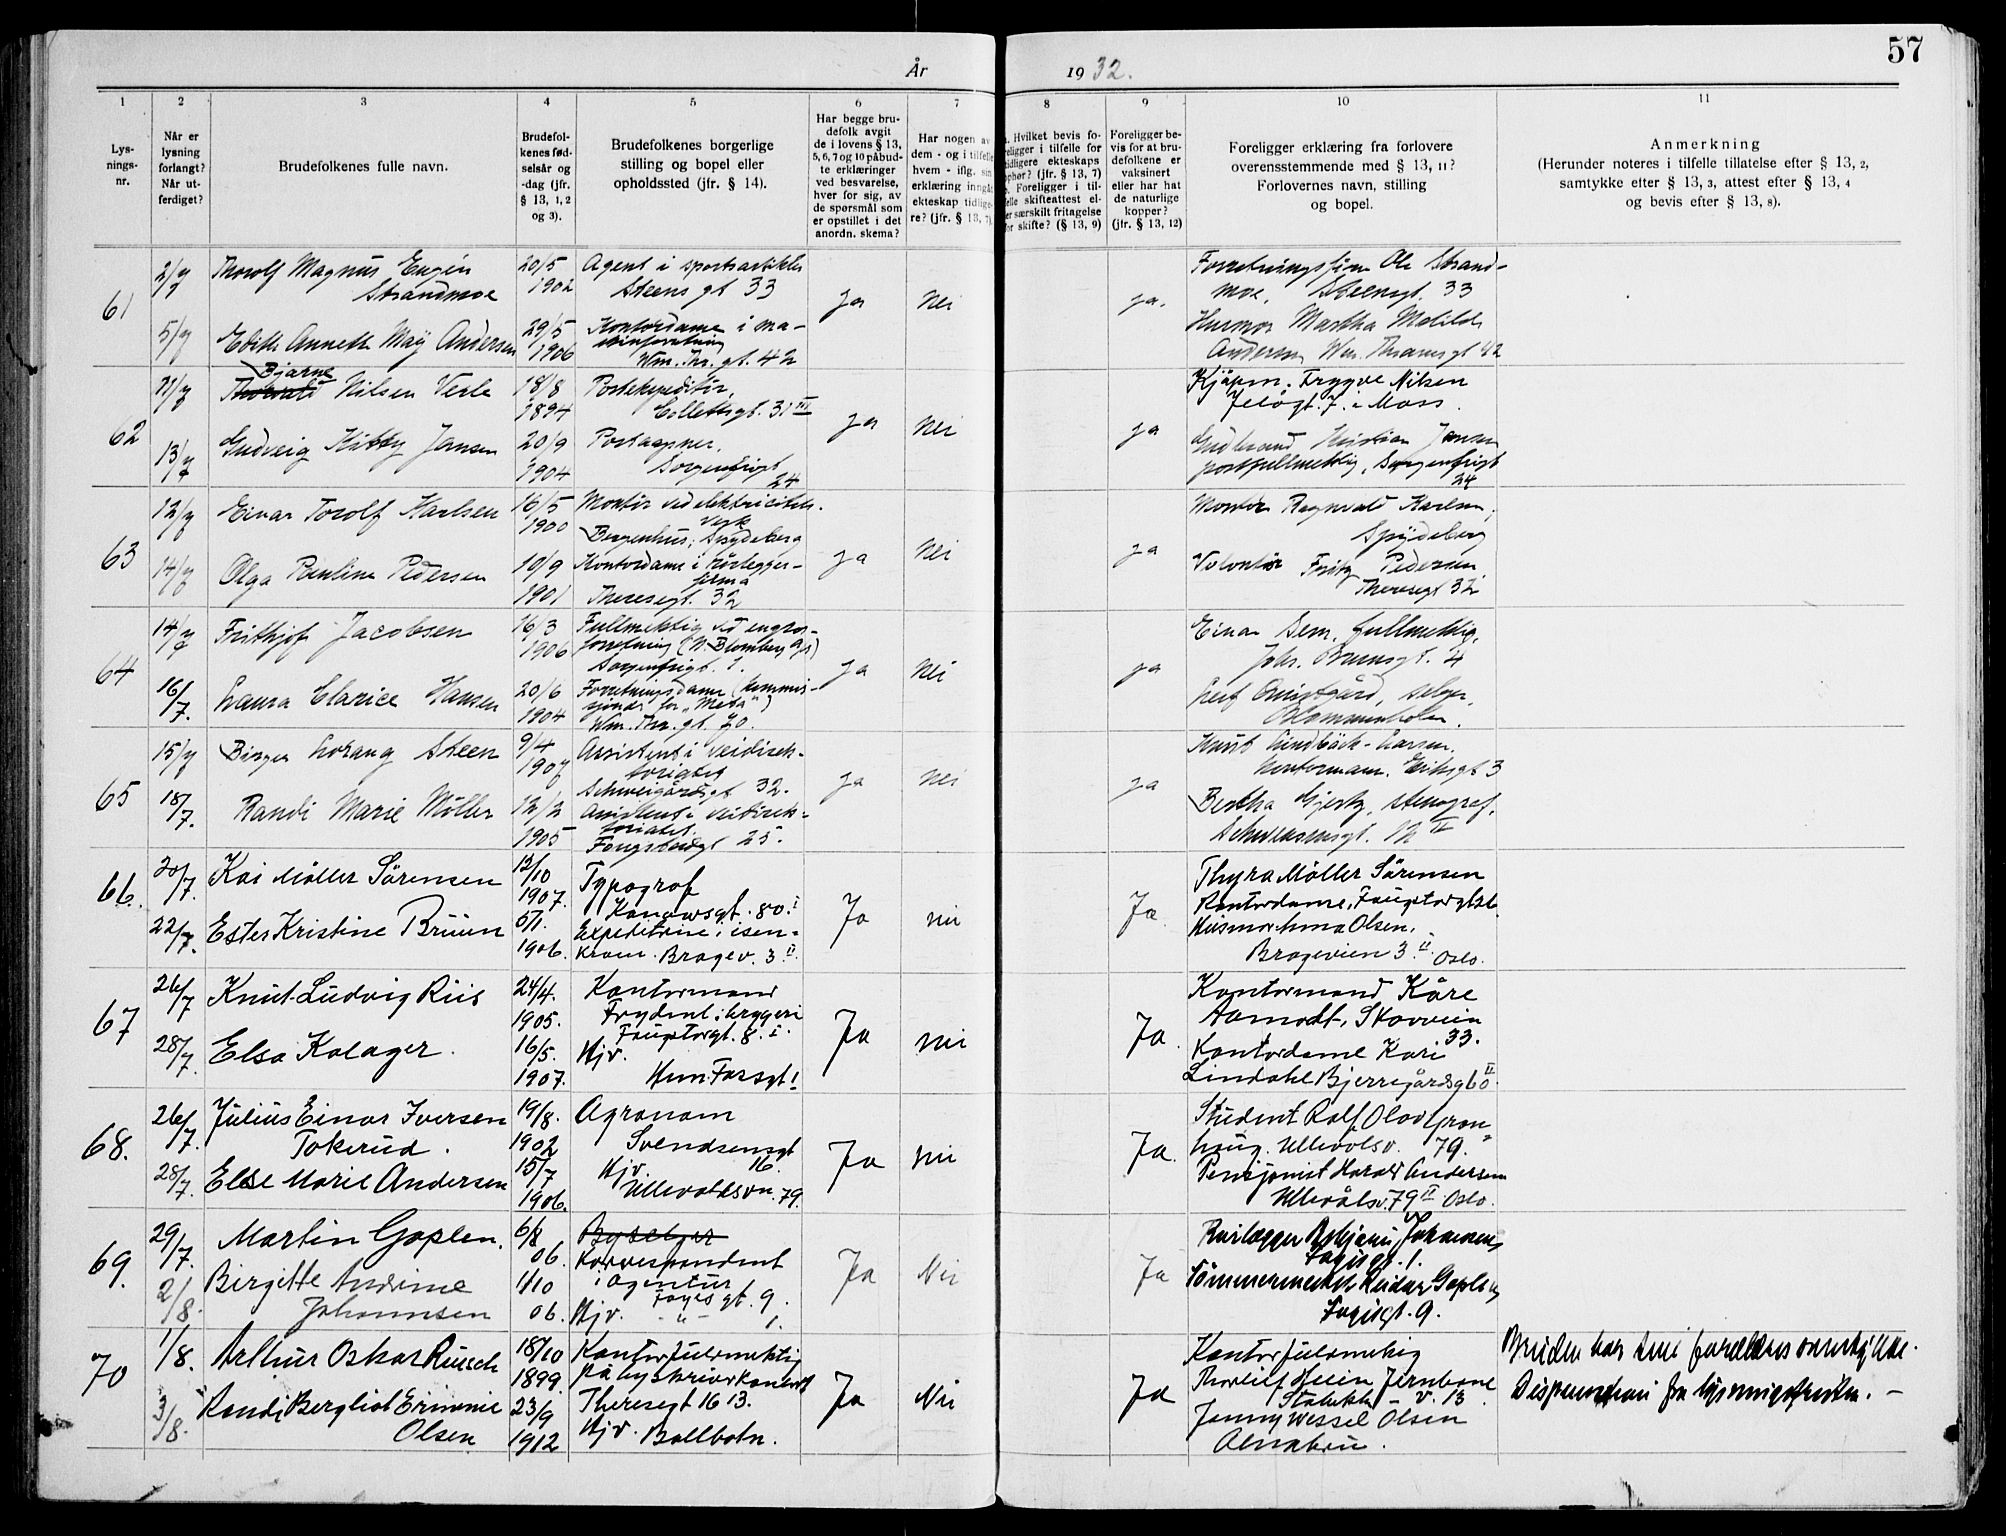 57
År 1932.
1 2 3 4 5 6 7 8 9 10 11
Lys-
nings-
nr.
Når er
lysning
forlangt?
Når ut-
ferdiget?
Brudefolkenes fulle navn.
Brudefol-
kenes fød-
selsår og
-dag (jfr.
§ 13, 1, 2
og 3).
Brudefolkenes borgerlige
stilling og bopel eller
opholdssted (jfr. § 14).
Har begge bru-
defolk avgit
de i lovens § 13,
5, 6, 7 og 10 påbud-
te erklæringer
ved besvarelse,
hver for sig, av
de spørsmål som
er opstillet i det
anordn. skema?
Har nogen av
dem - og i tilfelle
hvem - iflg. sin
erklæring inngått
ekteskap tidlige-
re? (jfr. § 13, 7).
Hvilket bevis fo-
religger i tilfelle for
tidligere ekteskaps
ophør? (jfr. § 13, 7)
Foreligger i til-
felle skifteattest el-
ler særskilt fritagelse
for skifte? (§ 13, 9)
Foreligger be-
vis for at bru-
defolkene er
vaksinert
eller har hat
de naturlige
kopper?
(jfr. § 13, 12)
Foreligger erklæring fra forlovere
overensstemmende med § 13, 11?
Forlovernes navn, stilling
og bopel.
Anmerkning
(Herunder noteres i tilfelle tillatelse efter § 13, 2,
samtykke efter § 13, 3, attest efter § 13, 4
og bevis efter § 13, 8).
61
2/7
Thorolf Magnus Eugen
Strandmoe
20/5
1902
Agent i sportsartikler
Steens gt 33
Ja
Nei
ja.
Forretningsfører Ole Strand-
moe, Steensgt. 33
5/7
Edith Anneth May Andersen
29/5
1906
Kontordame i ma-
skinforretning
Wm. Thr. gt. 42
Husmor Martha Matilde
Andersen Wm. Thranesgt 42
62
11/7
Bjarne
Nilsen Verle
18/8
1894
Postekspeditør,
Collettsgt. 31 III
Ja
Nei
ja
Kjøpm. Trygve Nilsen
Jeløgt. 7. i Moss.
13/7
Gudveig Kitty Jansen
20/9
1904
Postaapner,
Sorgenfrigt
24
Gudbrand Kristian Jansen
postfullmektig, Sorgenfrigt
24
63
12/7
Einar Torolf Karlsen
16/5
1900
Montør ved elektricitets-
verk
Bergenhus, Spydeberg
ja
Nei
ja
Montør Ragnvald Karlsen,
Spydeberg
14/7
Olga Pauline Pedersen
10/9
1901
Kontordame i rørlegger-
firma
Theresegt. 32
Volontør Fritz Pedersen
Theresegt 32
64
14/7
Frithjof Jacobsen
16/3
1906
Fullmektig ved engros-
forretning (N. Blomberg A/S)
Sorgenfrigt. 1.
ja
Nei
ja
Einar Sem, fullmektig,
Johs. Brunsgt. 4
16/7.
Laura Clarice Hansen
20/6
1904
Forretningsdame (kommis-
sjonær for "Meda")
Wm. Thr. gt. 70.
Leif Qvistgård, selger,
Blommenholm.
65
15/7
Birger Lorang Steen
9/4
1907
Assistent i Veidirek-
toratet
Schweigårdsgt 32.
ja
Nei
ja
Knut Lindbäck-Larsen,
kontormann. Eriksgt 3
18/7.
Randi Marie Möller
12/2
1905
Assistent i Veidirek-
toratet.
25.
Bertha Gjertz, stenograf,
66.
20/7.
Kai Möller Sörensen
12/10
1907.
Typograf
Kanowsgt. 80. I
Ja
nei
Ja.
Thyra Möller Sörensen
Kontordame,
22/7.
Ester Kristine Brüün
6/1.
1906.
Expeditrise i isen-
kram. Bragev. 3 II.
Husmor Anna Olsen,
Brageveien 3 II Oslo.
67
26/7
Knut Ludvig Riis
24/4.
1905.
Kontormand
Frydenl. bryggeri
Fauptorgt. 8. I.
Ja
nei
Ja.
Kontormand Kåre
Aamodt, Skovveien
33.
28/7.
Elsa Kalager.
16/5.
1907.
Hjv.
Kontordame Kari
Lindahl Bjerregårdsgt
68.
26/7.
Julius Einar Iversen
Tokerud.
19/8.
1902
Agronom
Svendsensgt
16.
Ja
nei
Ja.
Student Rolf Olav Gran-
haug. Ullevolsv. 79.
28/7.
Else Marie Andersen
15/7
1906.
Hjv.
Ullevoldsvn. 79.
Pensjonist Harald Andersen
Ullevålsv. 79 II Oslo.
69.
29/7.
Martin Goplen.
6/8
06.
Byselger
Korrespondent
i agentur
Fayes gt. 9.
Ja
Nei
Ja
Rørlegger Johannesen
Fayesgt. 1.
2/8.
Birgitte Andrine
Johannsen
1/10
06.
Hjv. - " - 1.
Tömmermester Reidar Goplen
Fayesgt. 9.
70
1/8.
Arthur Oskar Rusch
18/10
1899.
Kontorfuldmektig
på byskriverkontoret
Theresegt 16 13.
Ja
Nei
Ja
Kontorfuldmektig
Thorleif Heien Jernbane
Stabekk v. 13
Bruden har sine foreldres samtykke.
Dispensasjon fra lysningsfristen. -
3/8.
Randi Bergliot Erimmie
Olsen
23/9
1912
Hjv. Ballbotn.
Jenny Wessel Olsen
Alnabru.